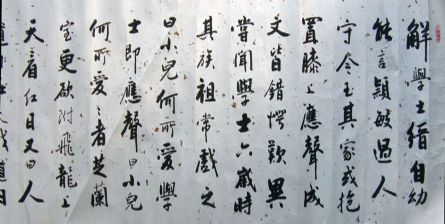 解學士縉自幼
能言穎敏過人
守令至其家或抱
置膝上應聲成
文皆錯愕歎異
嘗聞學士六歲時
其族祖常戲之
曰小兒何所愛學
士即應聲曰小兒
何所愛愛者芝蘭
室更欲附飛龍上
天看紅日又曰人
道